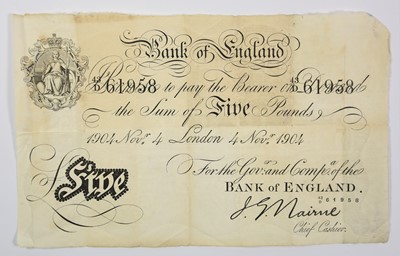 Bank of England
61958 to pay the Bearer on Demand 61958
the Sum of Five Pounds
1904 Novr. 4 London 4 Novr. 1904
For the Govr. and Compa. of the
BANK of ENGLAND.
£Five
61958
J. G. Nairne
Chief Cashier.